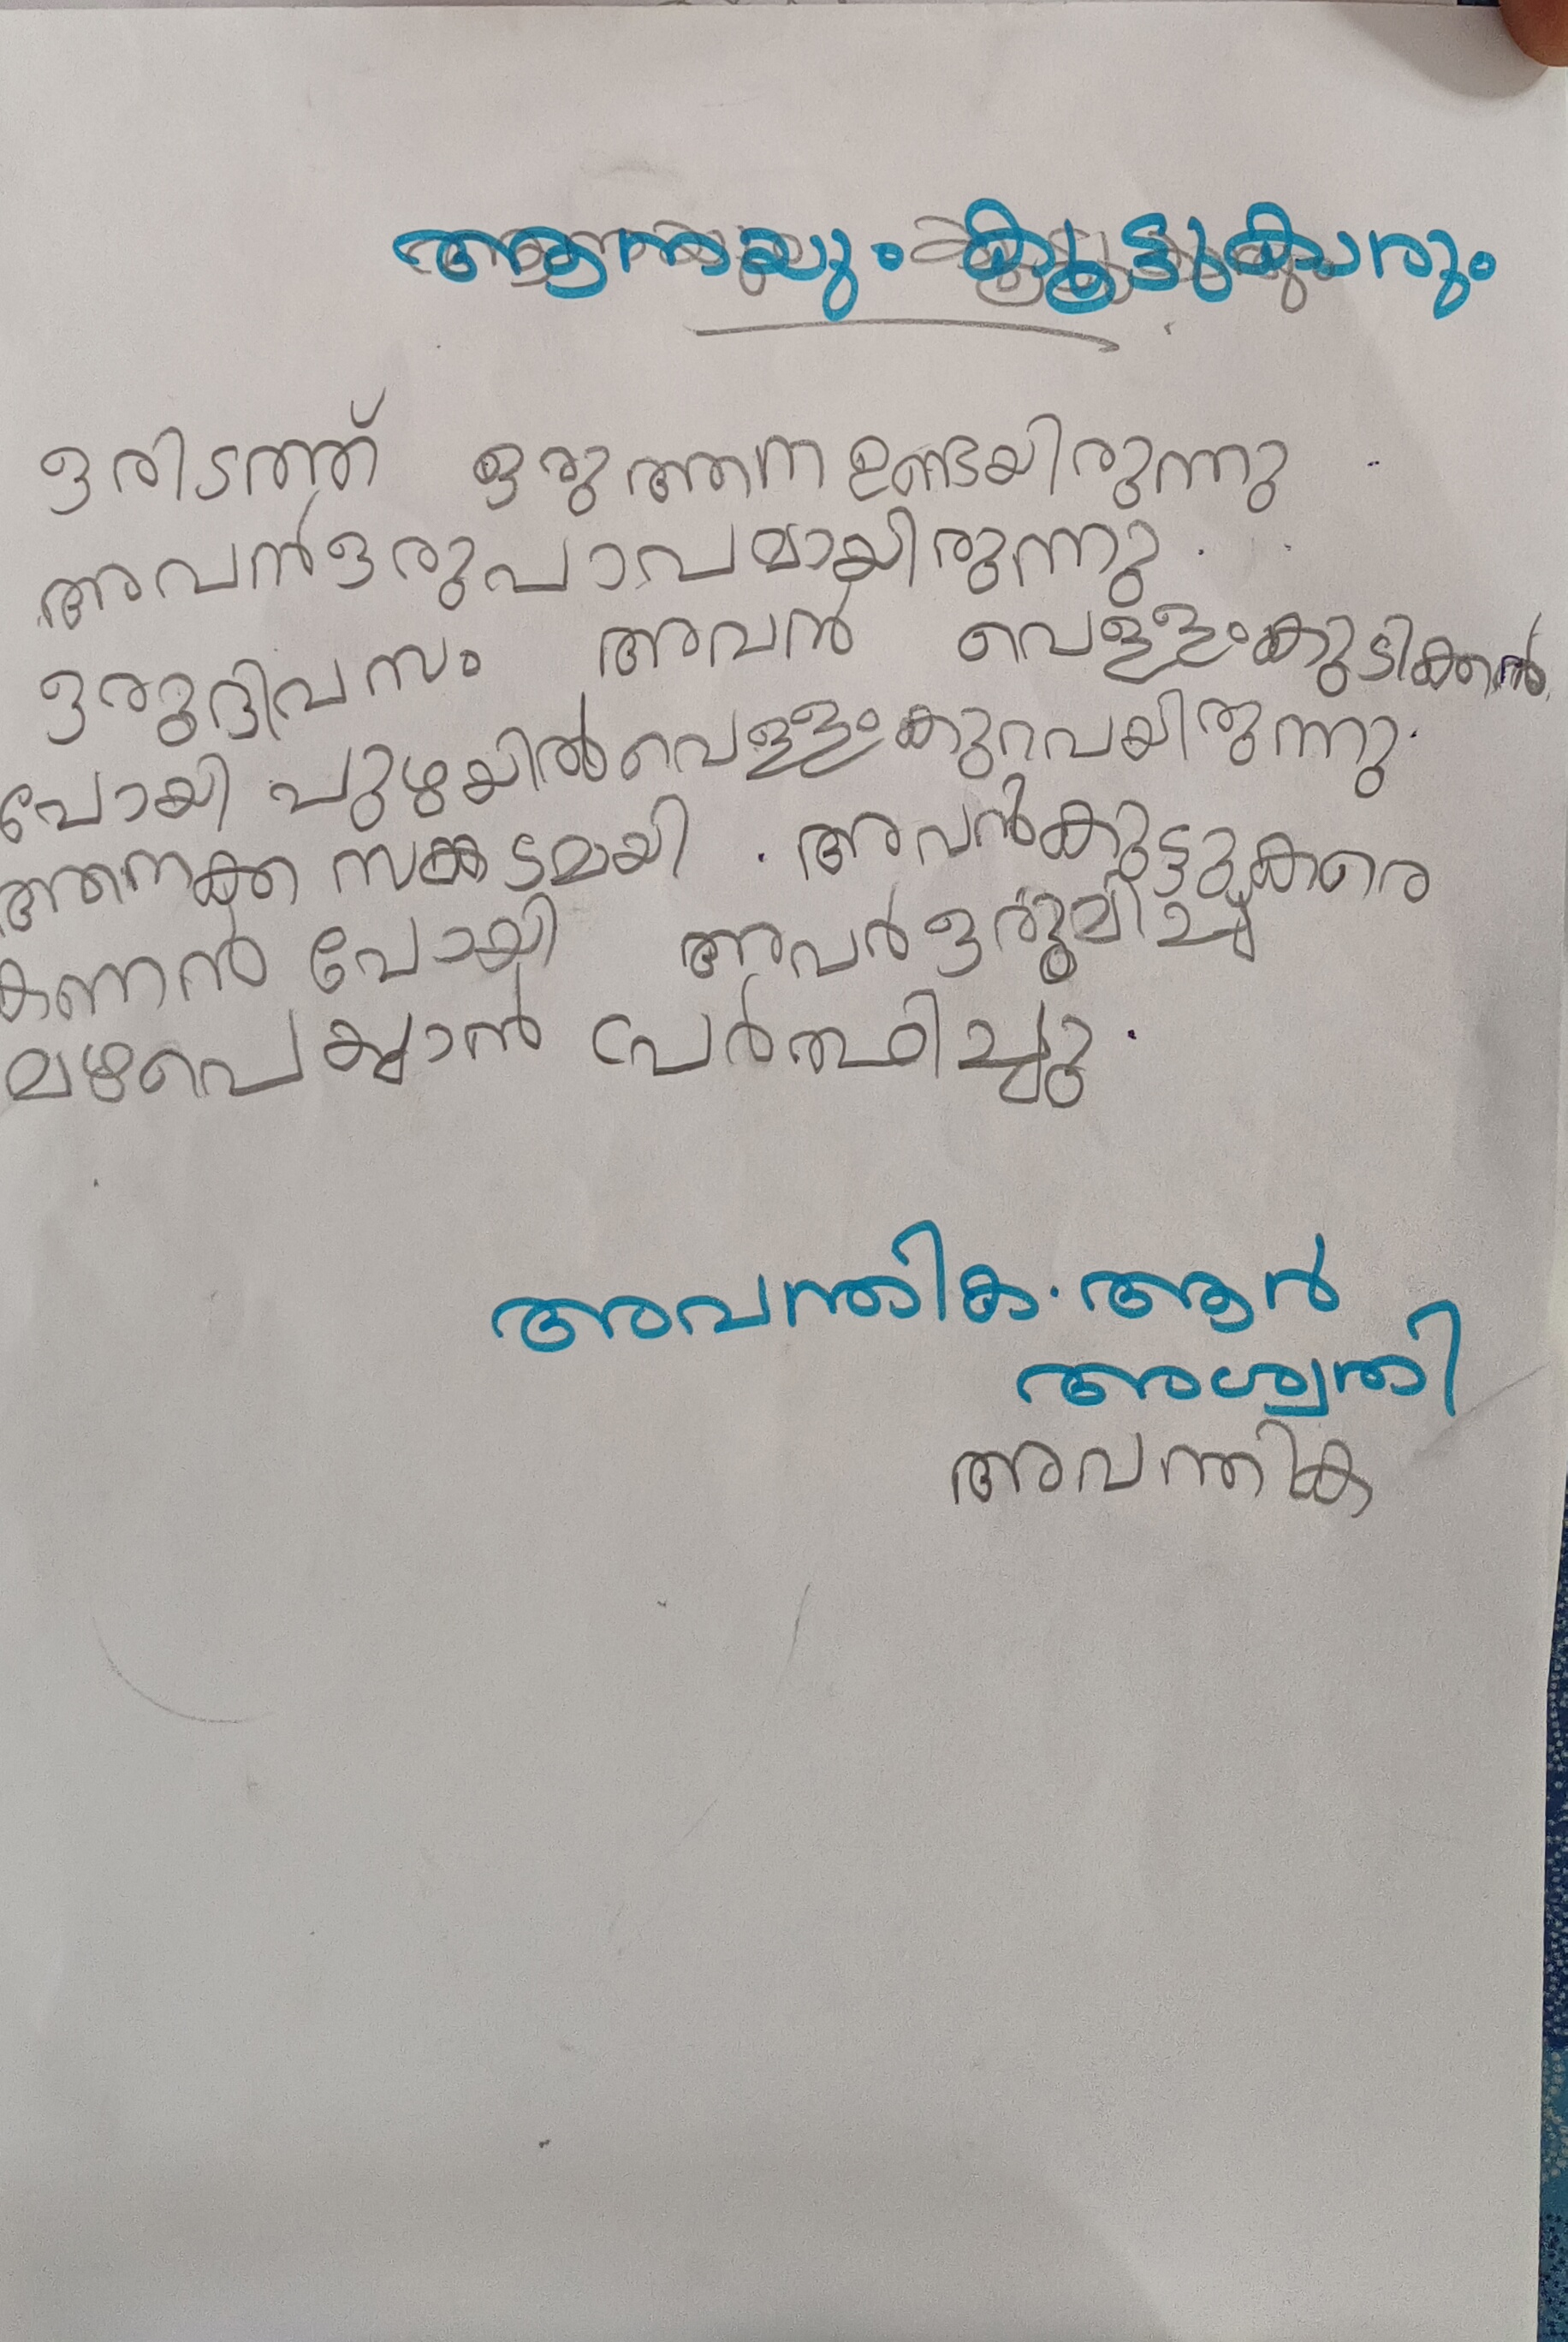 ആനയും കൂട്ടുകാരും
ഒരിടത്ത് ഒരു ആന ഉണ്ടയിരുന്നു
അവൻ ഒരു പാവമായിരുന്നു.
ഒരു ദിവസം അവൻ വെള്ളംകുടിക്കൻ
പോയി പുഴയിൽ വെള്ളംകുറവയിരുന്നു.
ആനക്ക സങ്കടമായി . അവൻ കുട്ടുകരെ
കണൻ പോയി അവർ ഒരുമിച്ച്
മഴപെയ്യാൻ പ്രേർത്ഥിച്ചു.
അവന്തിക. ആൻ
അശ്വതി
അവന്തിക